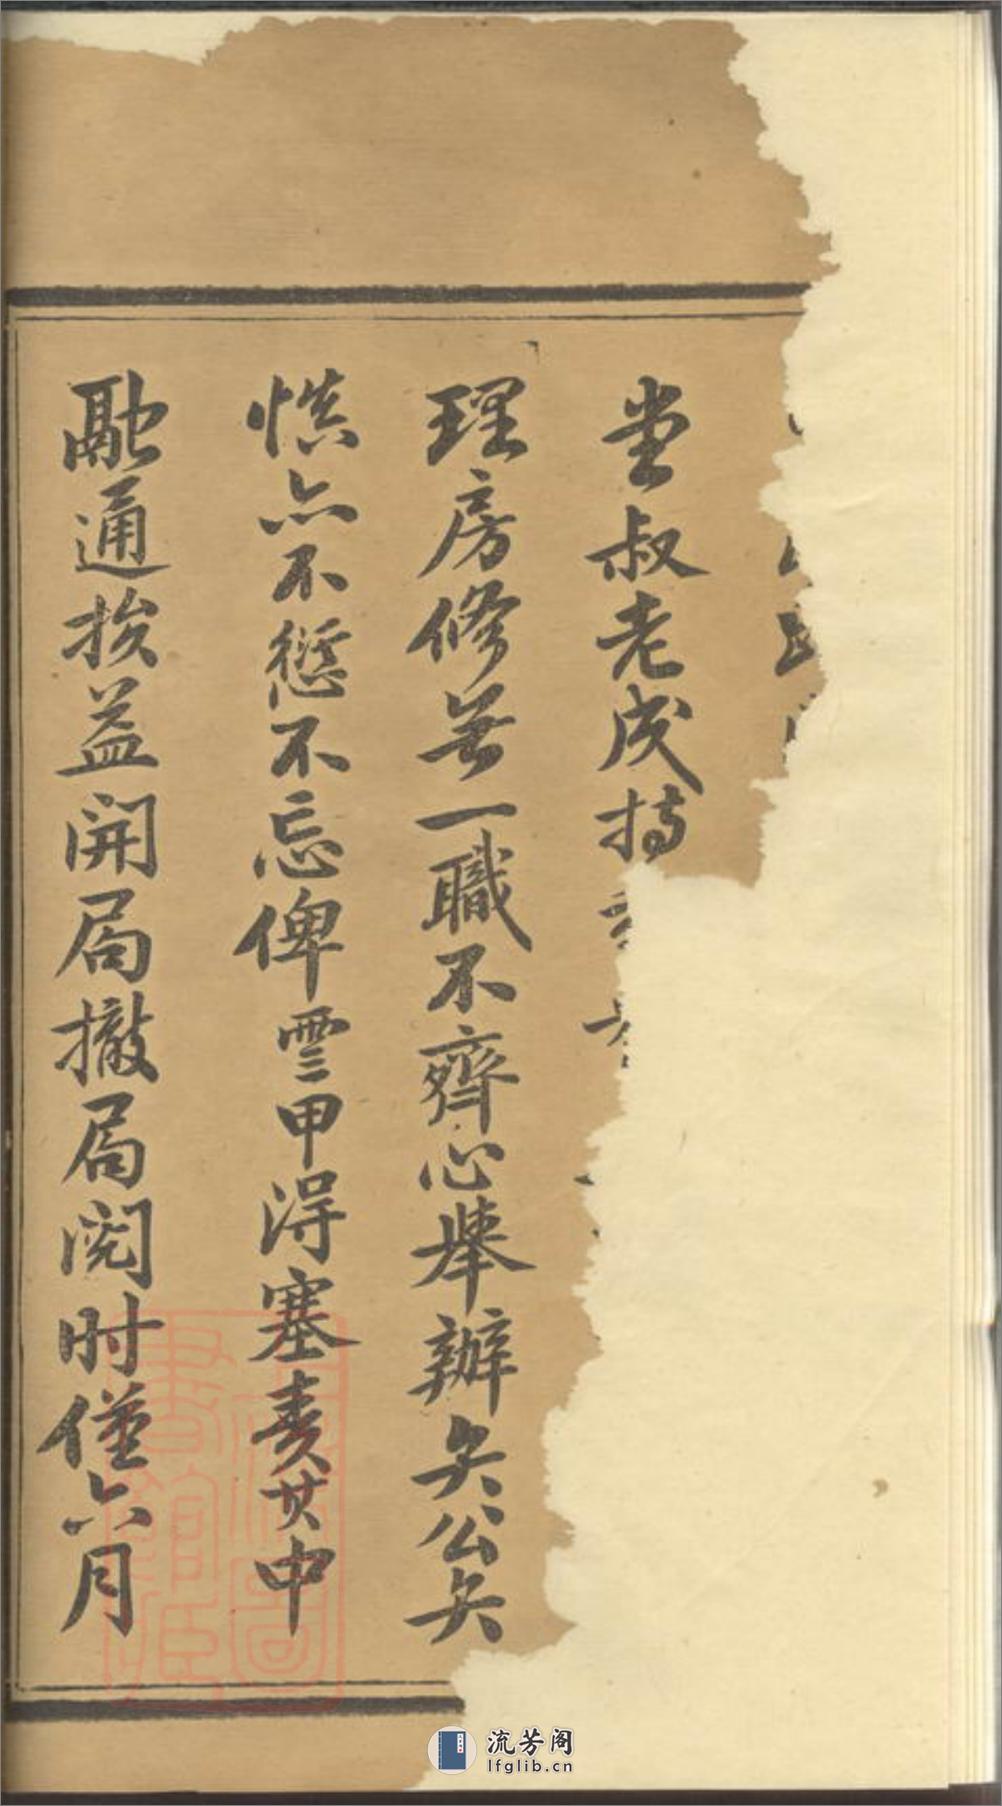 堂叔老成持
理房修無一職不齊心舉辦矢公矢
慎亦不愆不忘俾雲甲得塞責其中
融通挨益開局撤局閱时僅六月
流芳阁
lfglib.cn